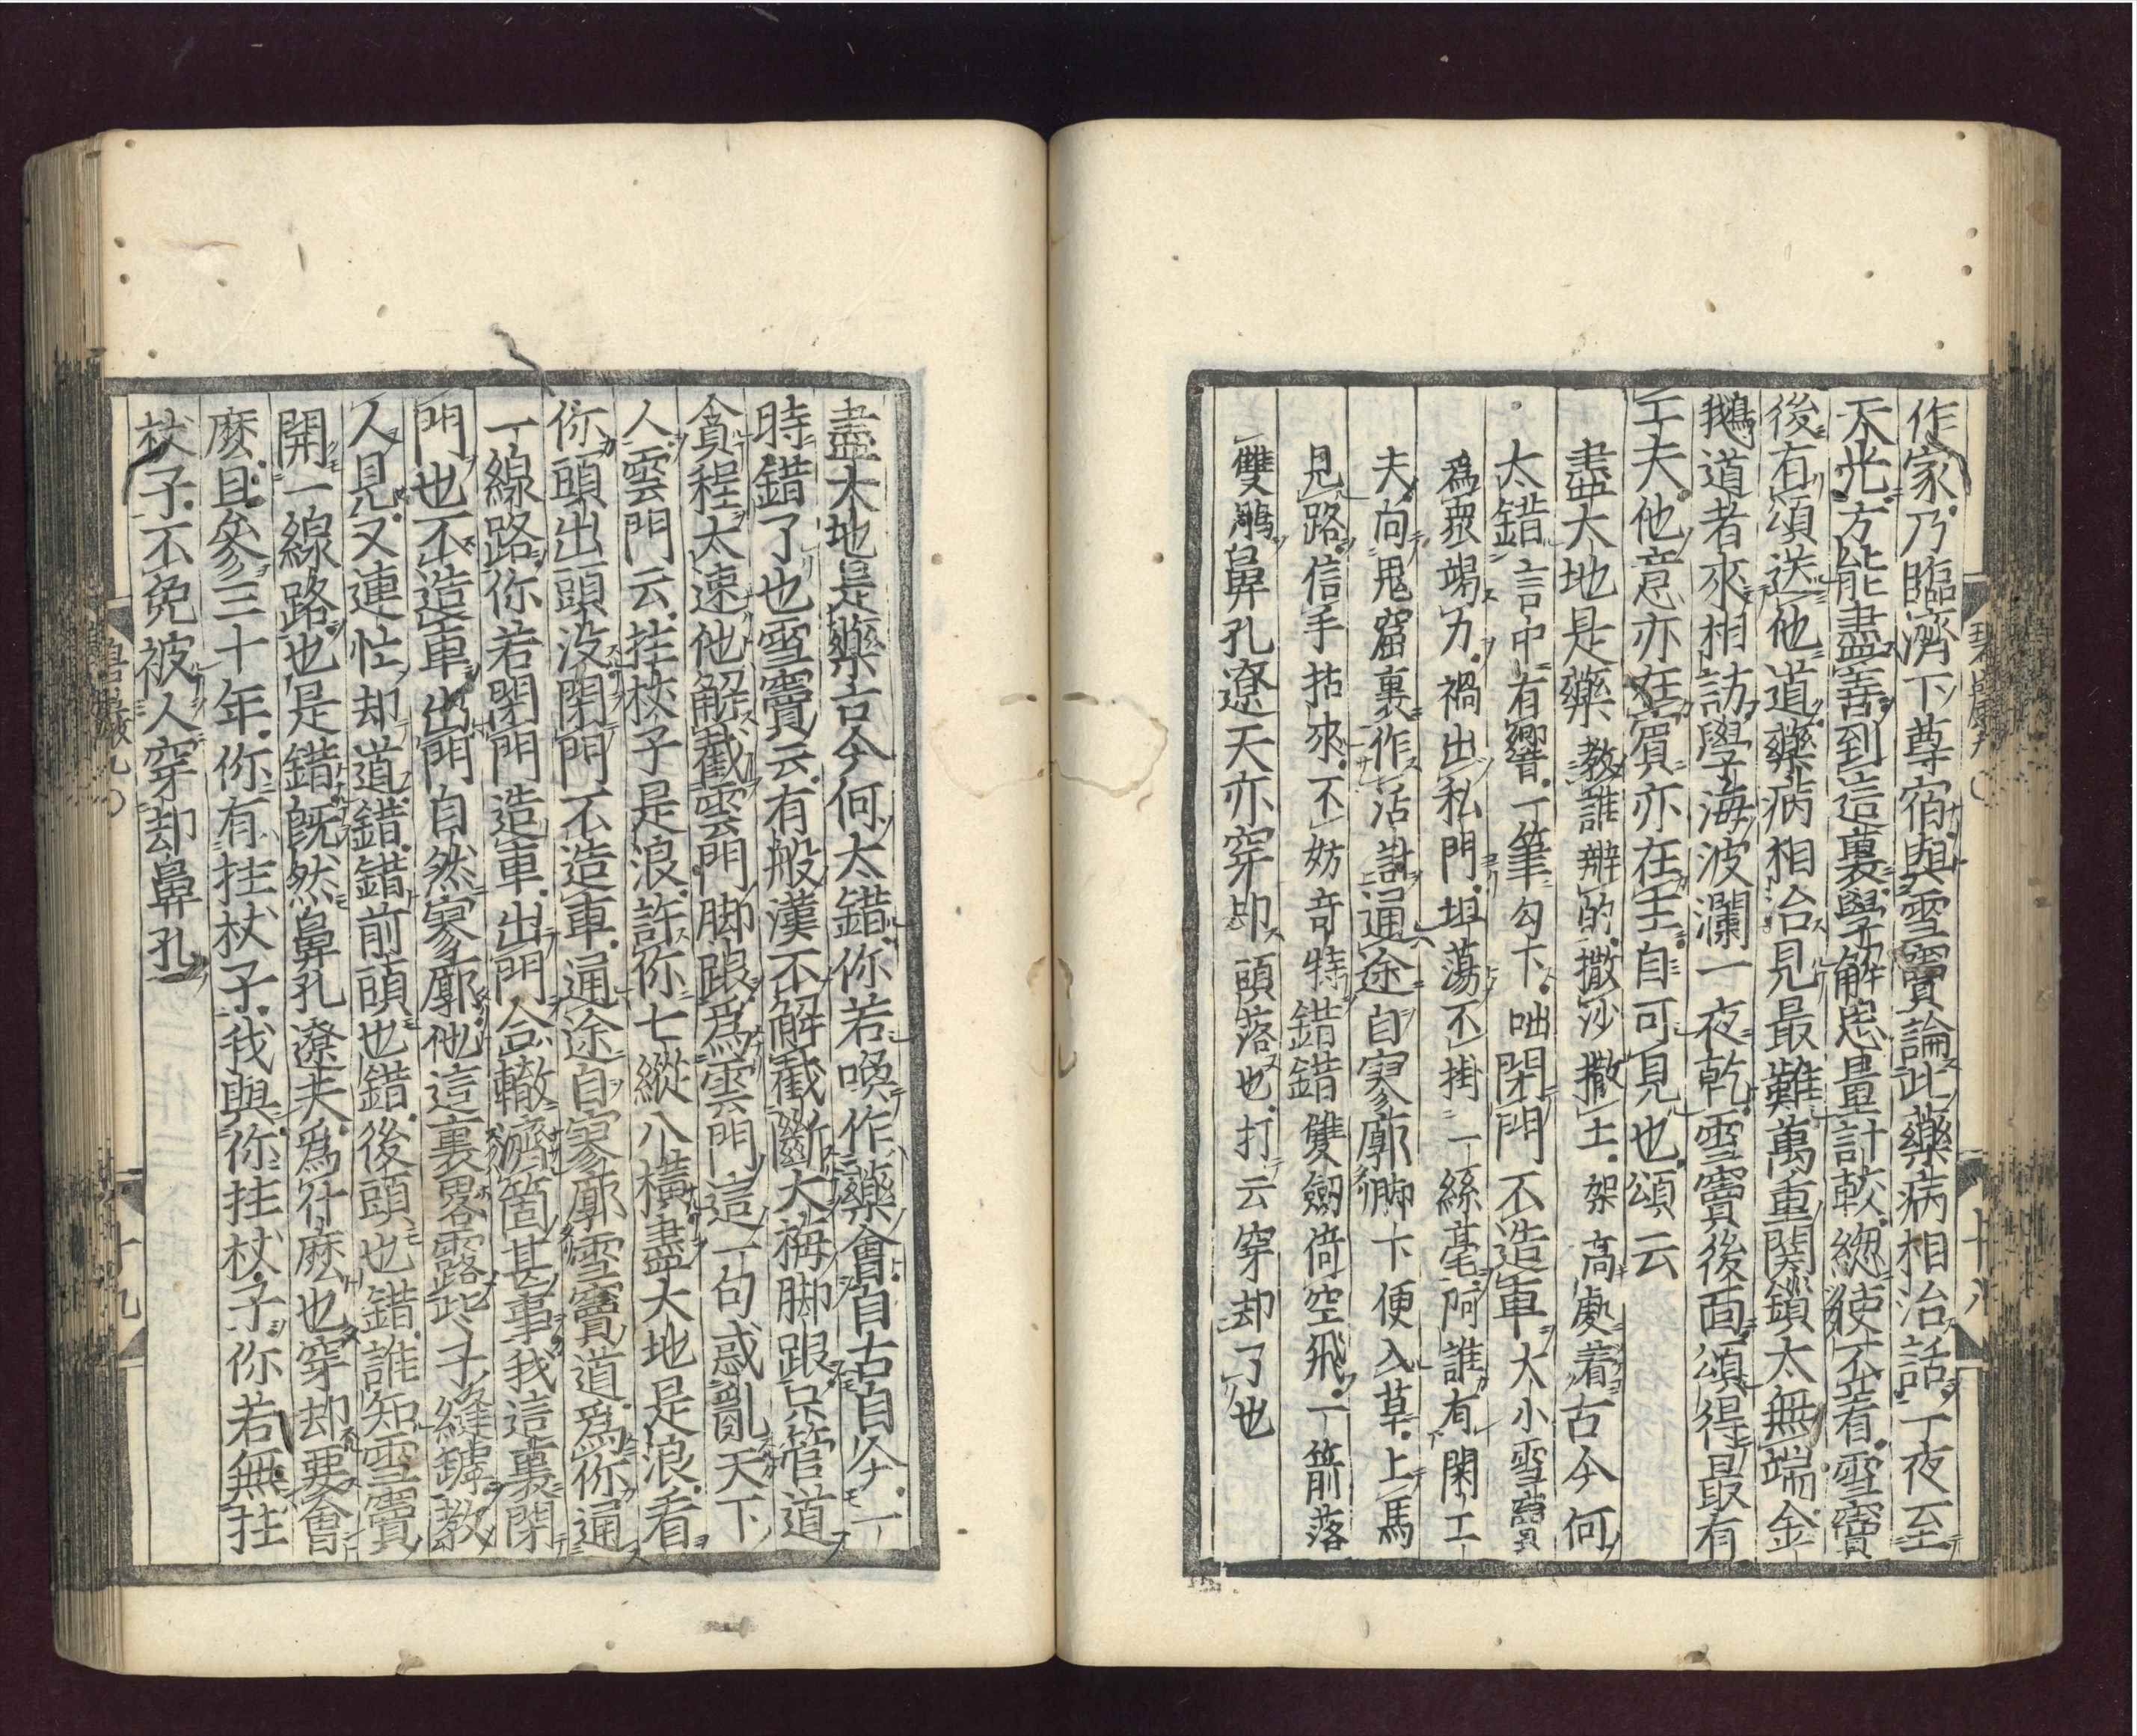 作家乃臨濟下尊宿與雪竇論此藥病相治話一夜至
天光方能盡善到這裏學解思量計較總使不着雪竇
後有頌送他道藥病相治見最難萬重關鎖太無端金
鵝道者來相訪學海波瀾一夜乾雪竇後面頌得最有
工夫他意亦在賓亦在主自可見也頌云
盡大地是藥教誰辨的撒沙撒土架高處着古今何
太錯言中有響一筆勾下咄閉門不造車大小雪竇
爲衆竭力禍出私門坦蕩不掛一絲毫阿誰有閑工
夫向鬼窟裏作活計通途自寥廓脚下便入草上馬
見路信手拈來不妨奇特錯錯雙劒倚空飛一箭落
雙鵰鼻孔遼天亦穿却頭落也打云穿却了也
碧巖九
十八
盡大地是藥古今何太錯你若喚作藥會自古自今一
時錯了也雪竇云有般漢不解截斷大梅脚跟只管道
貪程太速他解截雲門脚跟爲雲門這一句惑亂天下
人雲門云拄杖子是浪許你七縱八橫盡大地是浪看
你頭出頭沒閉門不造車通途自寥廓雪竇道爲你通
一線路你若閉門造車出門合轍濟箇甚事我這裏閉
門也不造車出門自然寥廓他這裏畧露些子縫罅教
人見又連忙却道錯錯前頭也錯後頭也錯誰知雪竇
開一線路也是錯既然鼻孔遼天爲什麽也穿却要會
麽且參三十年你有拄杖子我與你拄杖子你若無拄
杖子不免被人穿却鼻孔
碧巖九
十九